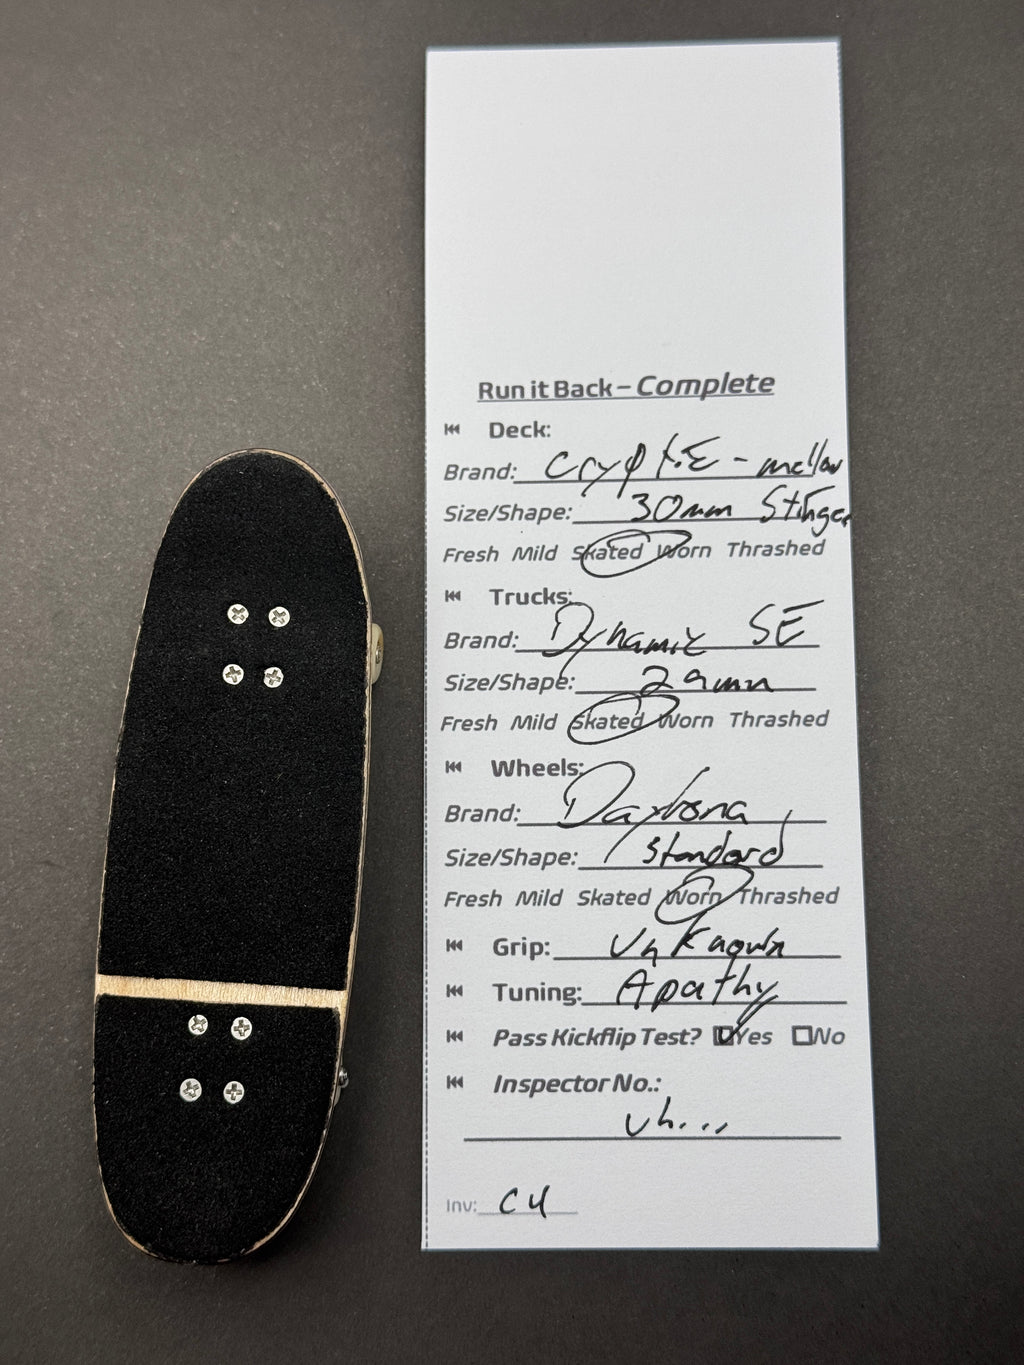 Run it Back – Complete
Deck:
Brand: Cryptic - mellow
Size/Shape: 30mm Stinger
Fresh Mild Skated Worn Thrashed
Trucks:
Brand: Dynamic SE
Size/Shape: 29mm
Fresh Mild Skated Worn Thrashed
Wheels:
Brand: Daytona
Size/Shape: Standard
Fresh Mild Skated Worn Thrashed
Grip: Unknown
Tuning: Apathy
Pass Kickflip Test? Yes No
Inspector No.:
Uh...
Inv: C4